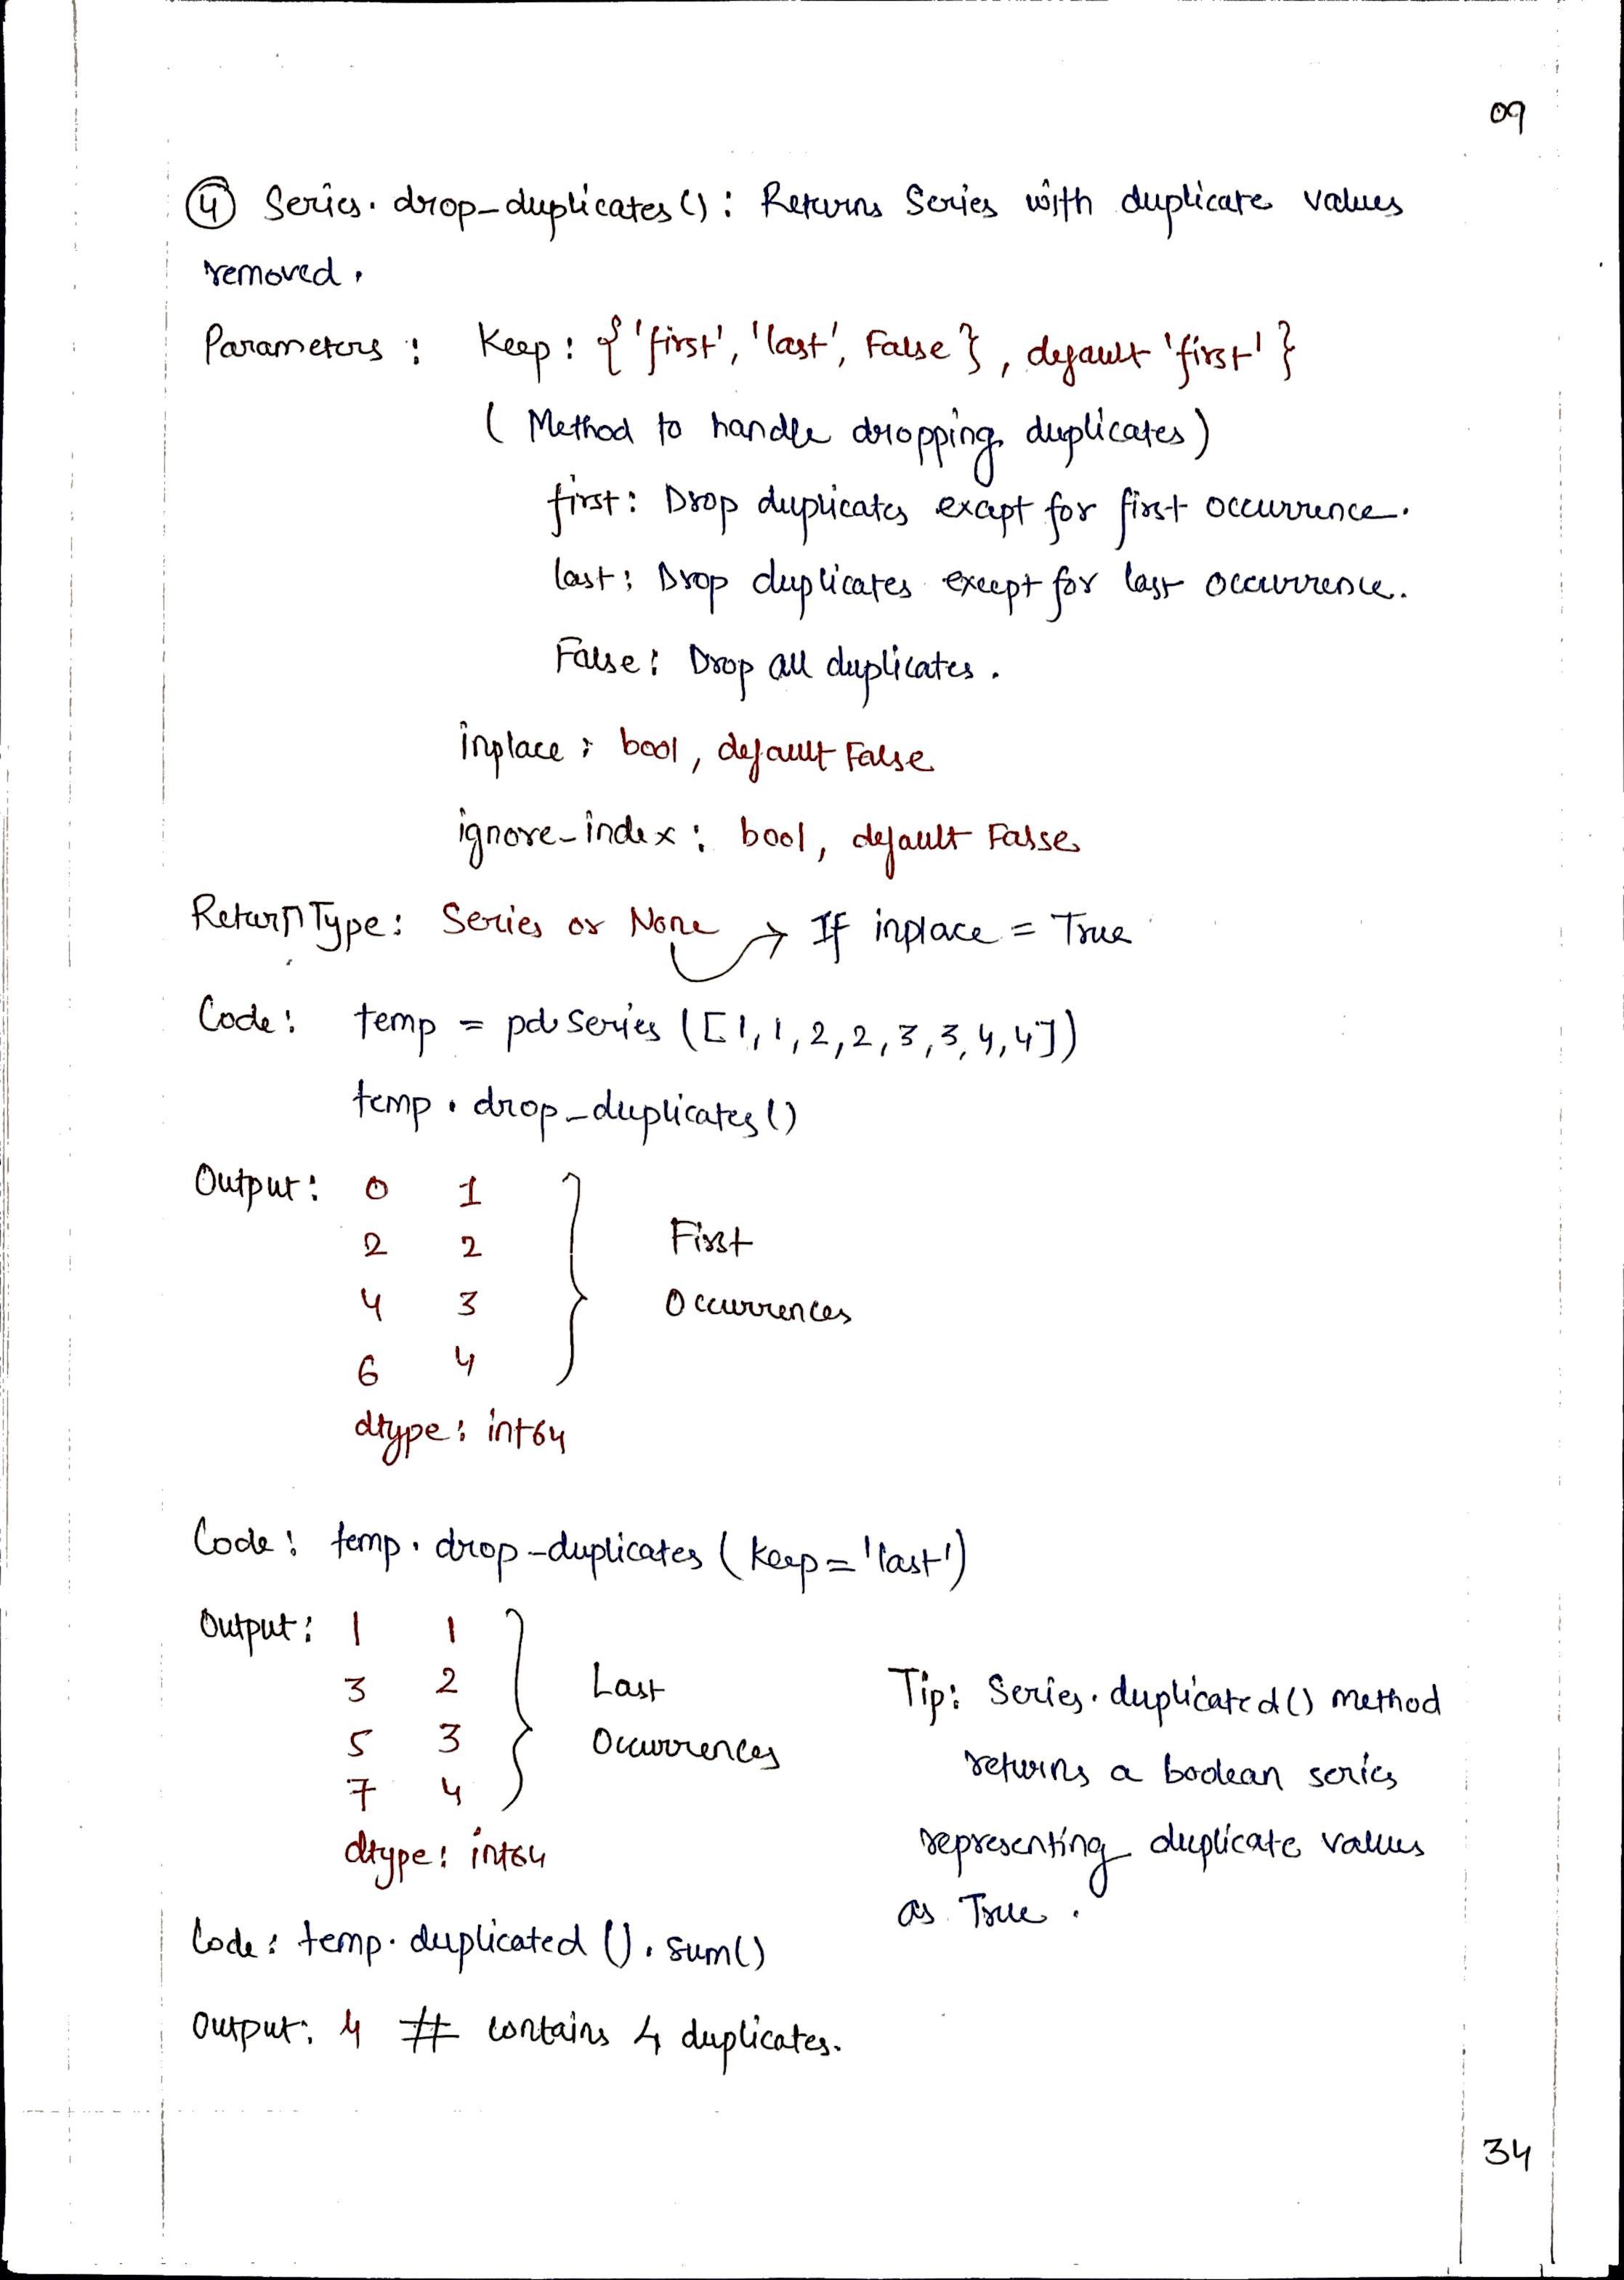 09
④ Series.drop_duplicates(): Returns Series with duplicate values
removed.
Parameters: Keep: {'first', 'last', False}, default 'first'}
(Method to handle dropping duplicates)
first: Drop duplicates except for first occurrence.
last: Drop duplicates except for last occurrence.
False: Drop all duplicates.
inplace: bool, default False
ignore_index: bool, default False
Return Type: Series or None → If inplace = True
Code: temp = pd.Series([1,1,2,2,3,3,4,4])
temp.drop_duplicates()
Output: 0 1
2 2
4 3
6 4
First
Occurrences
dtype: int64
Code: temp.drop_duplicates(keep='last')
Output: 1 1
3 2
5 3
7 4
Last
Occurrences
dtype: int64
Tip: Series.duplicated() method
returns a boolean series
representing duplicate values
as True.
Code: temp.duplicated().sum()
Output: 4 # contains 4 duplicates.
34